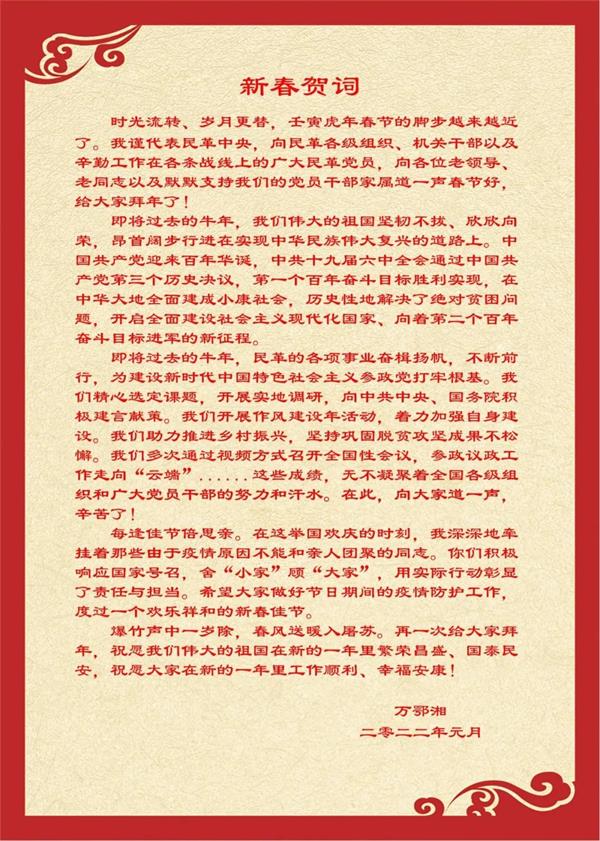 新春贺词
时光流转、岁月更替，壬寅虎年春节的脚步越来越近
了。我谨代表民革中央，向民革各级组织、机关干部以及
辛勤工作在各条战线上的广大民革党员，向各位老领导、
老同志以及默默支持我们的党员干部家属道一声春节好，
给大家拜年了！
即将过去的牛年，我们伟大的祖国坚韧不拔、欣欣向
荣，昂首阔步行进在实现中华民族伟大复兴的道路上。中
国共产党迎来百年华诞，中共十九届六中全会通过中国共
产党第三个历史决议，第一个百年奋斗目标胜利实现，在
中华大地全面建成小康社会，历史性地解决了绝对贫困问
题，开启全面建设社会主义现代化国家、向着第二个百年
奋斗目标进军的新征程。
即将过去的牛年，民革的各项事业奋楫扬帆，不断前
行，为建设新时代中国特色社会主义参政党打牢根基。我
们精心选定课题，开展实地调研，向中共中央、国务院积
极建言献策。我们开展作风建设年活动，着力加强自身建
设。我们助力推进乡村振兴，坚持巩固脱贫攻坚成果不松
懈。我们多次通过视频方式召开全国性会议，参政议政工
作走向“云端”......这些成绩，无不凝聚着全国各级组
织和广大党员干部的努力和汗水。在此，向大家道一声，
辛苦了！
每逢佳节倍思亲。在这举国欢庆的时刻，我深深地牵
挂着那些由于疫情原因不能和亲人团聚的同志。你们积极
响应国家号召，舍“小家”顾“大家”，用实际行动彰显
了责任与担当。希望大家做好节日期间的疫情防护工作，
度过一个欢乐祥和的新春佳节。
爆竹声中一岁除，春风送暖入屠苏。再一次给大家拜
年，祝愿我们伟大的祖国在新的一年里繁荣昌盛、国泰民
安，祝愿大家在新的一年里工作顺利、幸福安康！
万鄂湘
二零二二年元月